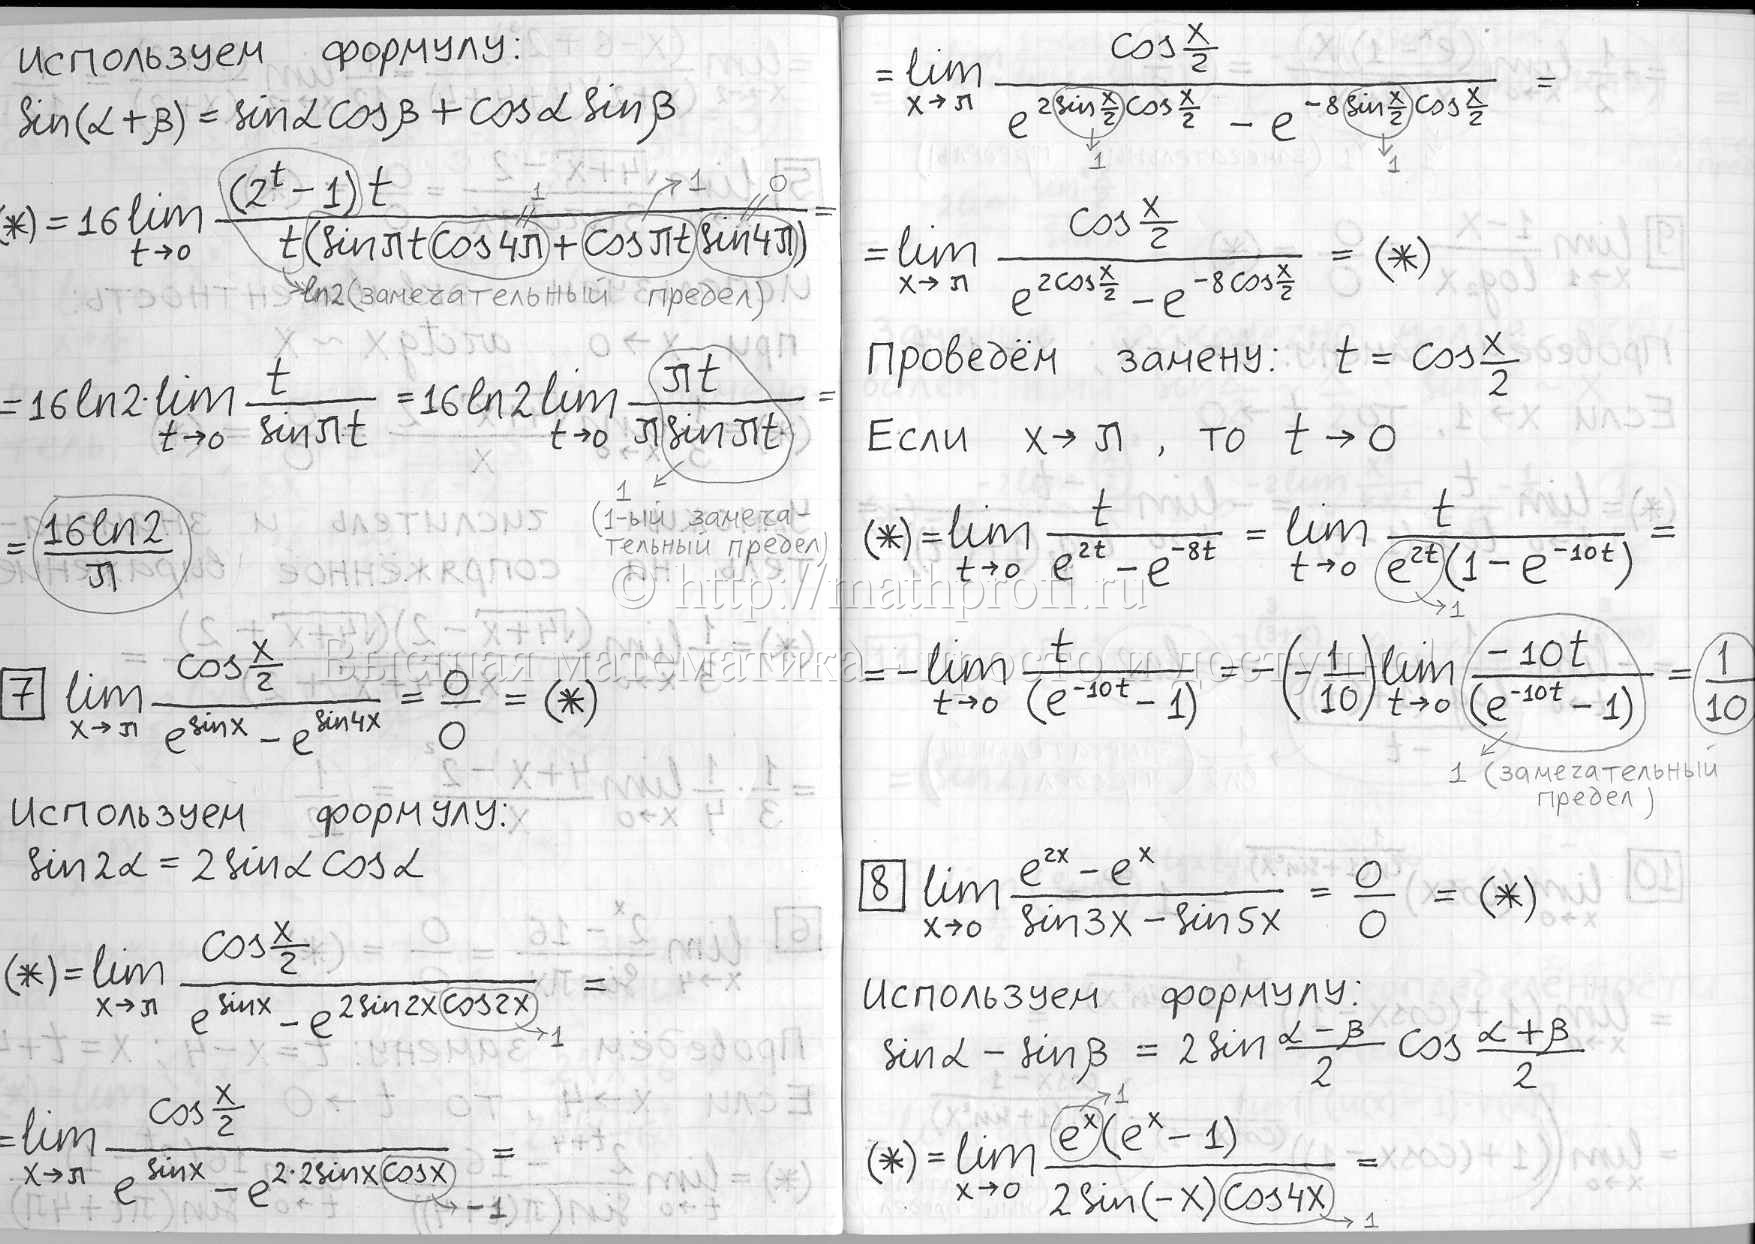 Используем формулу:
sin(α+β) = sinα cosβ + cosα sinβ
(*) = 16 lim_{t→0} (2^t − 1)t / t(sinπt cos4π + cosπt sin4π) =
1 →1 0
→ln2 (замечательный предел)
= 16ln2·lim_{t→0} t / sinπt = 16ln2 lim_{t→0} πt / π sinπt =
1
(1-ый замеча-
тельный предел)
= 16ln2 / π
7 lim_{x→π} cos x/2 / (e^{sinx} − e^{sin4x}) = 0/0 = (*)
Используем формулу:
sin2α = 2sinα cosα
(*) = lim_{x→π} cos x/2 / (e^{sinx} − e^{2sin2x cos2x}) =
→1
= lim_{x→π} cos x/2 / (e^{sinx} − e^{2·2sinx cosx}) =
→−1
= lim_{x→π} cos x/2 / (e^{2sin x/2 cos x/2} − e^{−8sin x/2 cos x/2}) =
1 1
= lim_{x→π} cos x/2 / (e^{2cos x/2} − e^{−8cos x/2}) = (*)
Проведём замену: t = cos x/2
Если x→π, то t→0
(*) = lim_{t→0} t / (e^{2t} − e^{−8t}) = lim_{t→0} t / e^{2t}(1 − e^{−10t}) =
→1
= −lim_{t→0} t / (e^{−10t} − 1) = −(−1/10) lim_{t→0} −10t / (e^{−10t} − 1) = 1/10
1 (замечательный
предел)
8 lim_{x→0} (e^{2x} − e^x) / (sin3x − sin5x) = 0/0 = (*)
Используем формулу:
sinα − sinβ = 2sin (α−β)/2 cos (α+β)/2
(*) = lim_{x→0} e^x(e^x − 1) / 2sin(−x)cos4x =
→1
→1
© http://mathprofi.ru
Высшая математика – просто и доступно!